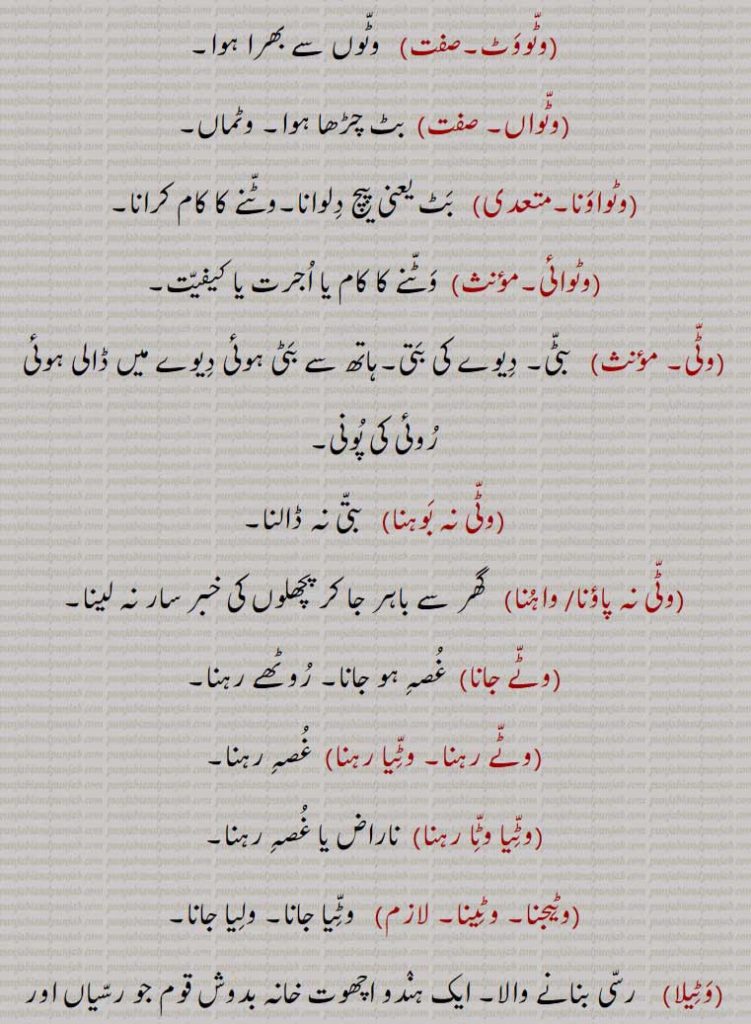 (وٹّووَٹ۔صفت) وٹّوں سے بھرا ہوا۔
(وٹّواں۔ صفت) بٹ چڑھا ہوا۔ وٹماں۔
(وٹواوَنا۔متعدی) بَٹ یعنی پیچ دِلوانا۔وٹّنے کا کام کرانا۔
(وٹوائی۔مؤنث) وَٹّنے کا کام یا اُجرت یا کیفیّت۔
(وٹّی۔ مؤنث) بتّی۔ دِیوے کی بَتی۔ہاتھ سے بَٹی ہوئی دِیوے میں ڈالی ہوئی
رُوئی کی پُونی۔
(وٹّی نہ بَوہنا) بتّی نہ ڈالنا۔
(وٹّی نہ پاؤنا/ واہُنا) گھر سے باہر جا کر پچھلوں کی خبر سار نہ لینا۔
(وٹّے جانا) غُصہِ ہو جانا۔ رُوٹھے رہنا۔
(وٹّے رہنا۔ وٹِّیا رہنا) غُصہِ رہنا۔
(وٹِّیا وٹِّا رہنا) ناراض یا غُصہِ رہنا۔
(وٹیجنا۔ وٹِینا۔ لازم) وٹِّیا جانا۔ ولِیا جانا۔
(وَٹِیلا) رسّی بنانے والا۔ ایک ہندُو اچھوت خانہ بدوش قوم جو رسّیاں اور